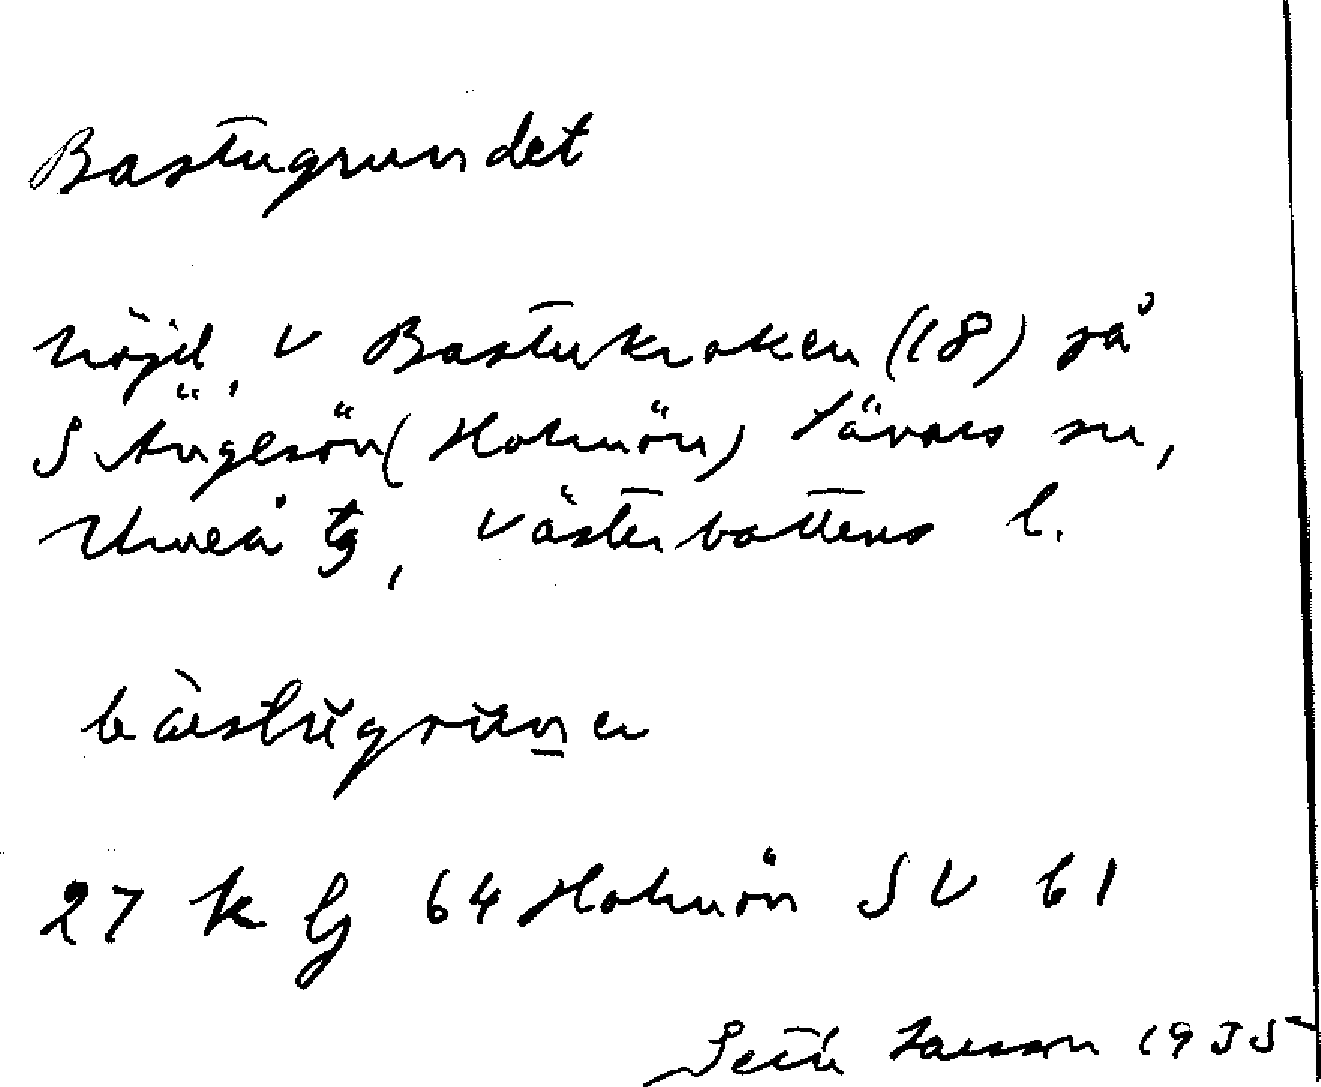 Bastugrundet
höjd V Bastukroken (18) på
S Ängesön (Holmön) Sävars sn,
Umeå tg, Västerbottens l.
27 K g 64 Holmön SV b1
Seth Larsson 1935